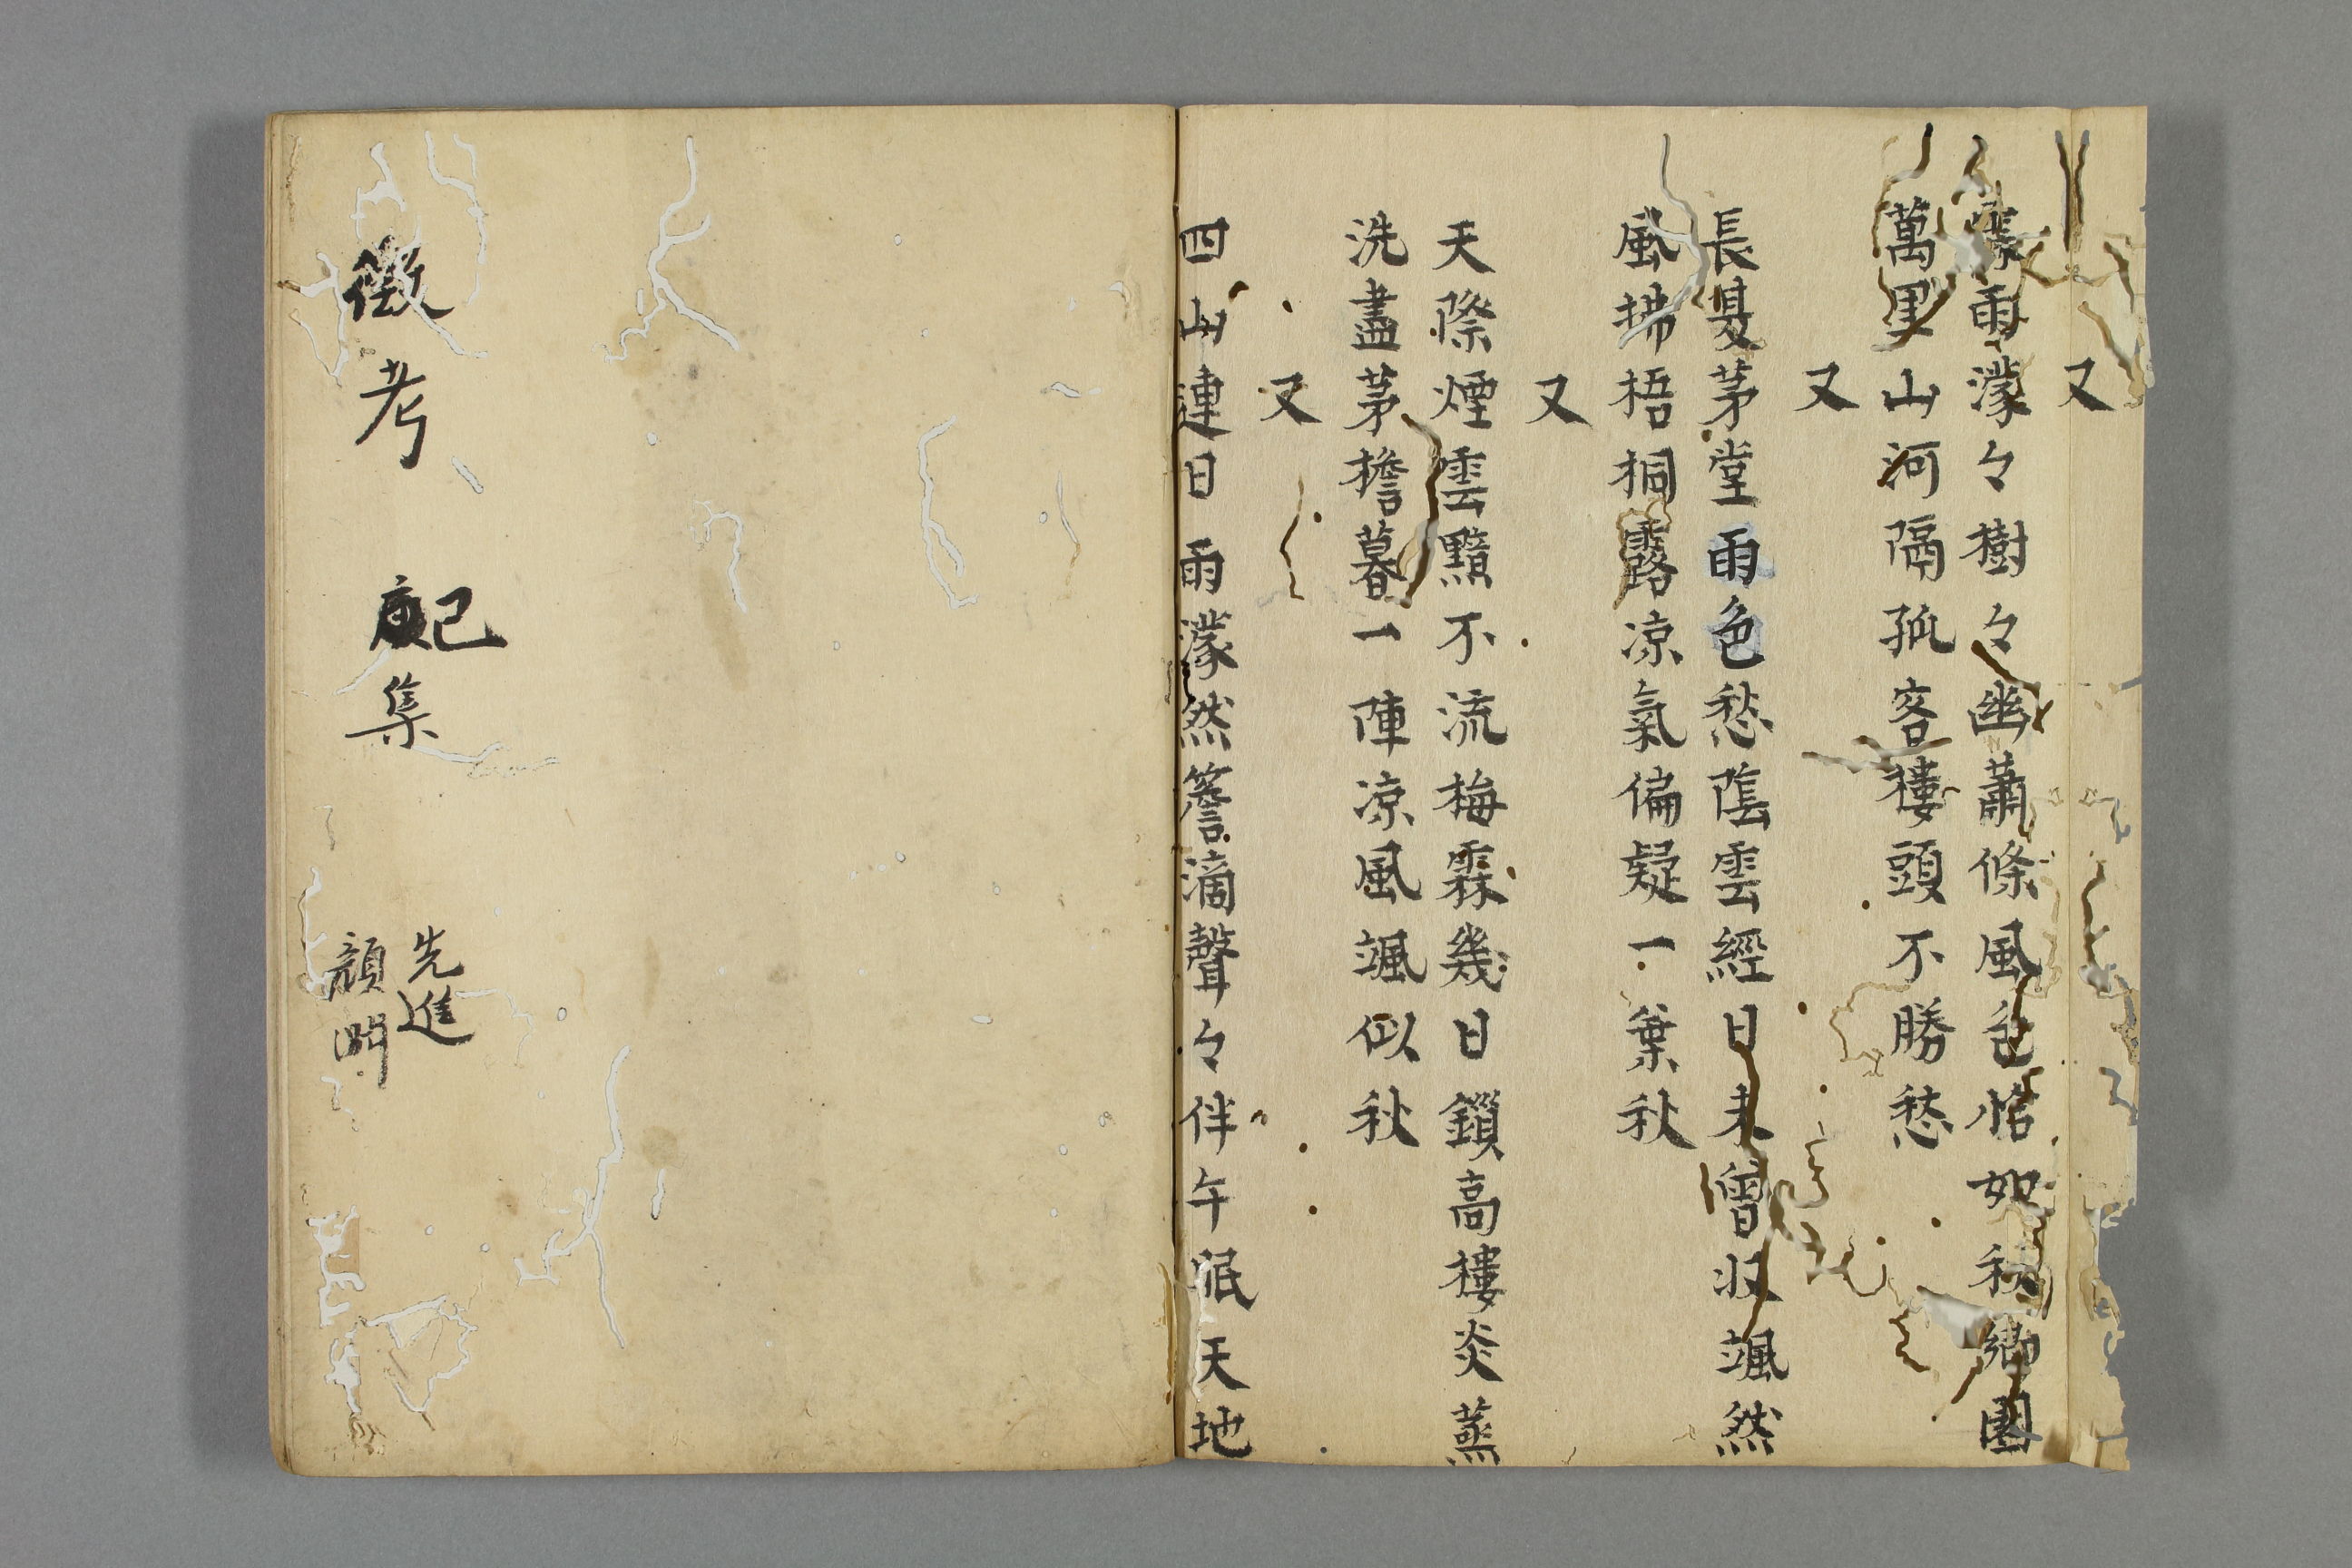 又
雨濛々樹々幽蕭條風色恰如秋郷園
萬里山河隔孤客樓頭不勝愁
又
長夏茅堂雨色愁陰雲經日未曾收颯然
風拂梧桐露凉氣偏疑一葉秋
又
天際煙雲黯不流梅霖幾日鎖高樓炎蒸
洗盡茅檐暮一陣凉風颯似秋
又
四山連日雨濛然簷滴聲々伴午眠天地
徴考
己集
先進
顔淵